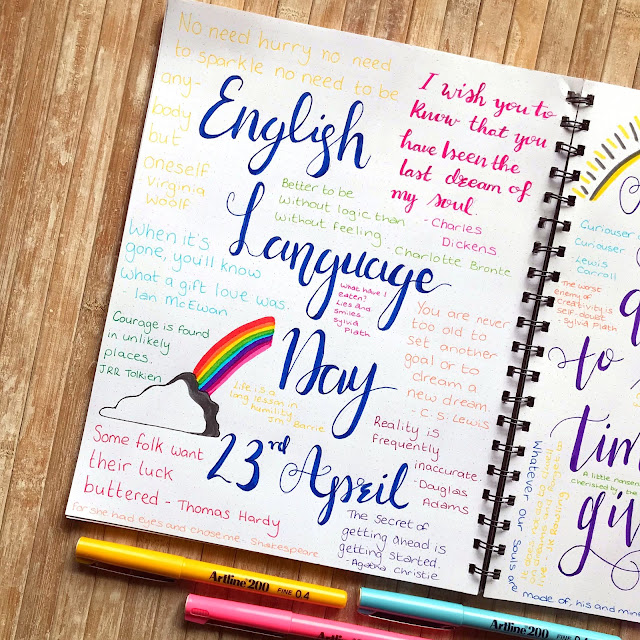 No need hurry no need
to sparkle no need to be
any-
body
but
oneself
Virginia
Woolf
English
Language
Day
23rd April
I wish you to
know that you
have been the
last dream of
my soul.
- Charles
Dickens
Better to be
without logic than
without feeling. Charlotte Bronte
When it's
gone, you'll know
what a gift love was.
- Ian McEwan
What have I
eaten?
Lies and
smiles.
Sylvia
Plath
You are never
too old to
set another
goal or to
dream a
new dream.
- C.S. Lewis
Courage is found
in unlikely
places.
JRR Tolkien
Life is a
long lesson in
humility
JM Barrie
Reality is
frequently
inaccurate.
- Douglas
Adams
Some folk want
their luck
buttered - Thomas Hardy
for she had eyes and chose me. Shakespeare
The Secret of
getting ahead is
getting started.
- Agatha Christie
Curiouser
Curiouser
Lewis
Carroll
The worst
enemy of
creativity is
self-doubt
- Sylvia Plath
to
tim
A little nonsen
cherished by the
giv
Whatever our souls are made of, his and mine
Artline 200 FINE 0.4
Artline 200
Artline 200